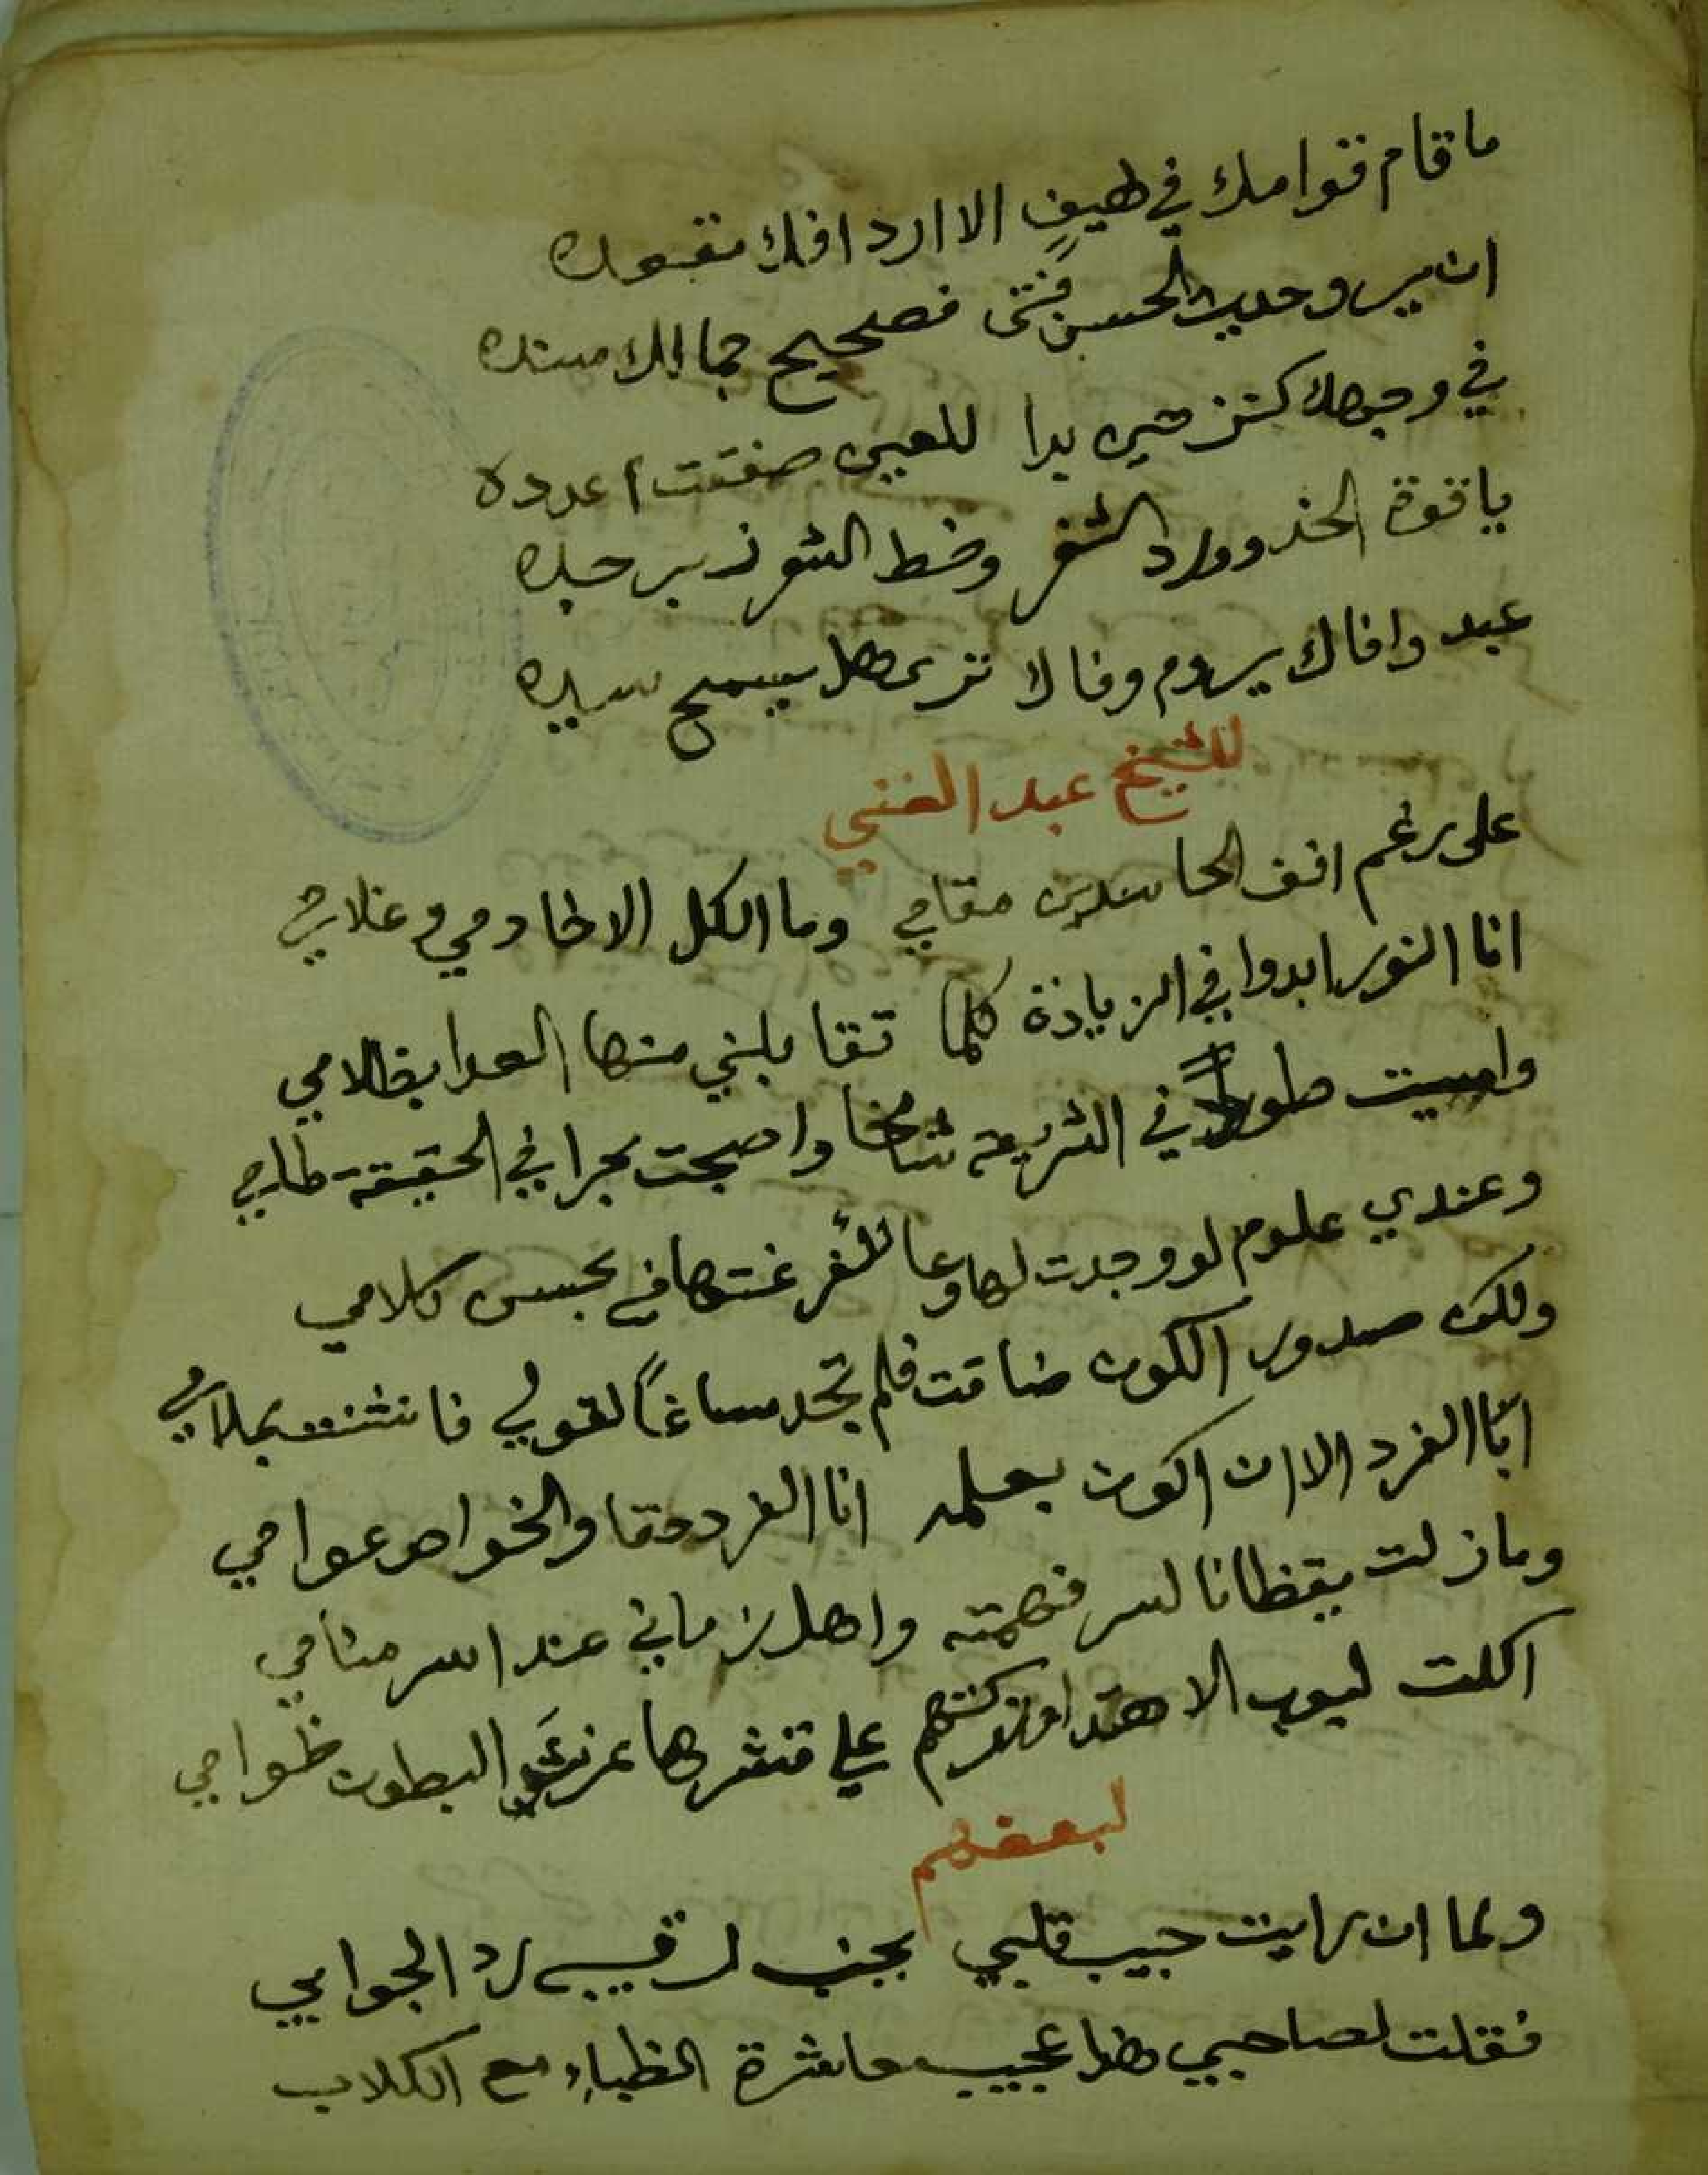 ما قام قوامك في هيف الا اردافك تقعده
ان يرو حديث الحسن فتى فصحيح جمالك مسنده
في وجهك كنز حين بدا للعين صفقت اعدده
ياقوة الخد وورد الثغر وخط الشعر زبرجده
عبد وافاك يروم وفاك ترى هل يسمح سيده
للشيخ عبد الغني
على رغم انف الحاسدين مقامي وما الكل الا خادمي وغلامي
انا النور ابدوا في الزيادة كلما تقابلني منها العدا بظلامي
وامسيت طودا في الشريعة شامخا واصبحت بحرا في الحقيقة طامي
وعندي علوم لو وجدت لها وعا لافرغتها فيه بحسن كلامي
ولكن صدور الكون ضاقت فلم تجد مساغاً لقولي فانثنت بملامي
انا الفرد الا ان اكون بعلمه انا الفرد حقا والخواص عوامي
وما زلت يقظانا لسر فهمته واهل زماني عند اسر منامي
اكلت لبوب الاهتدا وتركتهم على قشرها غرثى البطون ظوامي
لبعضهم
ولما ان رايت حبيب قلبي بجنب رقيبه رد الجوابي
فقلت لصاحبي هذا عجيب معاشرة الظباء مع الكلاب